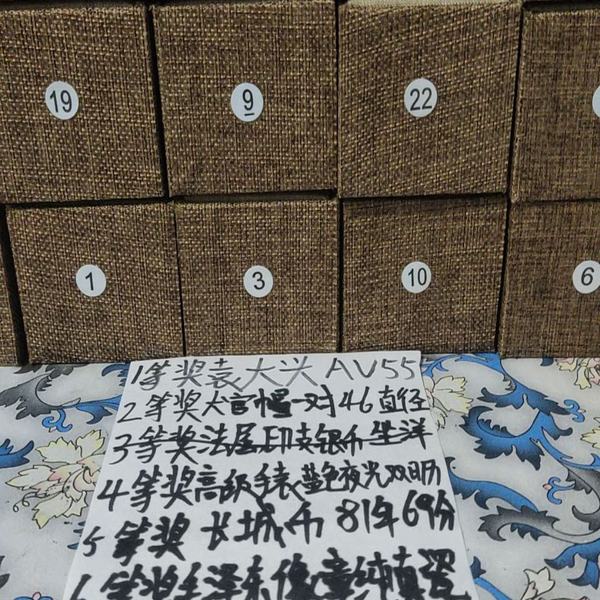 19 9 22
1 3 10 6
1等奖袁大头AU55
2等奖大官帽一对46直径
3等奖法属印支银币坐洋
4等奖高级手表蓝色夜光双日历
5等奖长城币81年69分
6等奖毛泽东像章纯真瓷